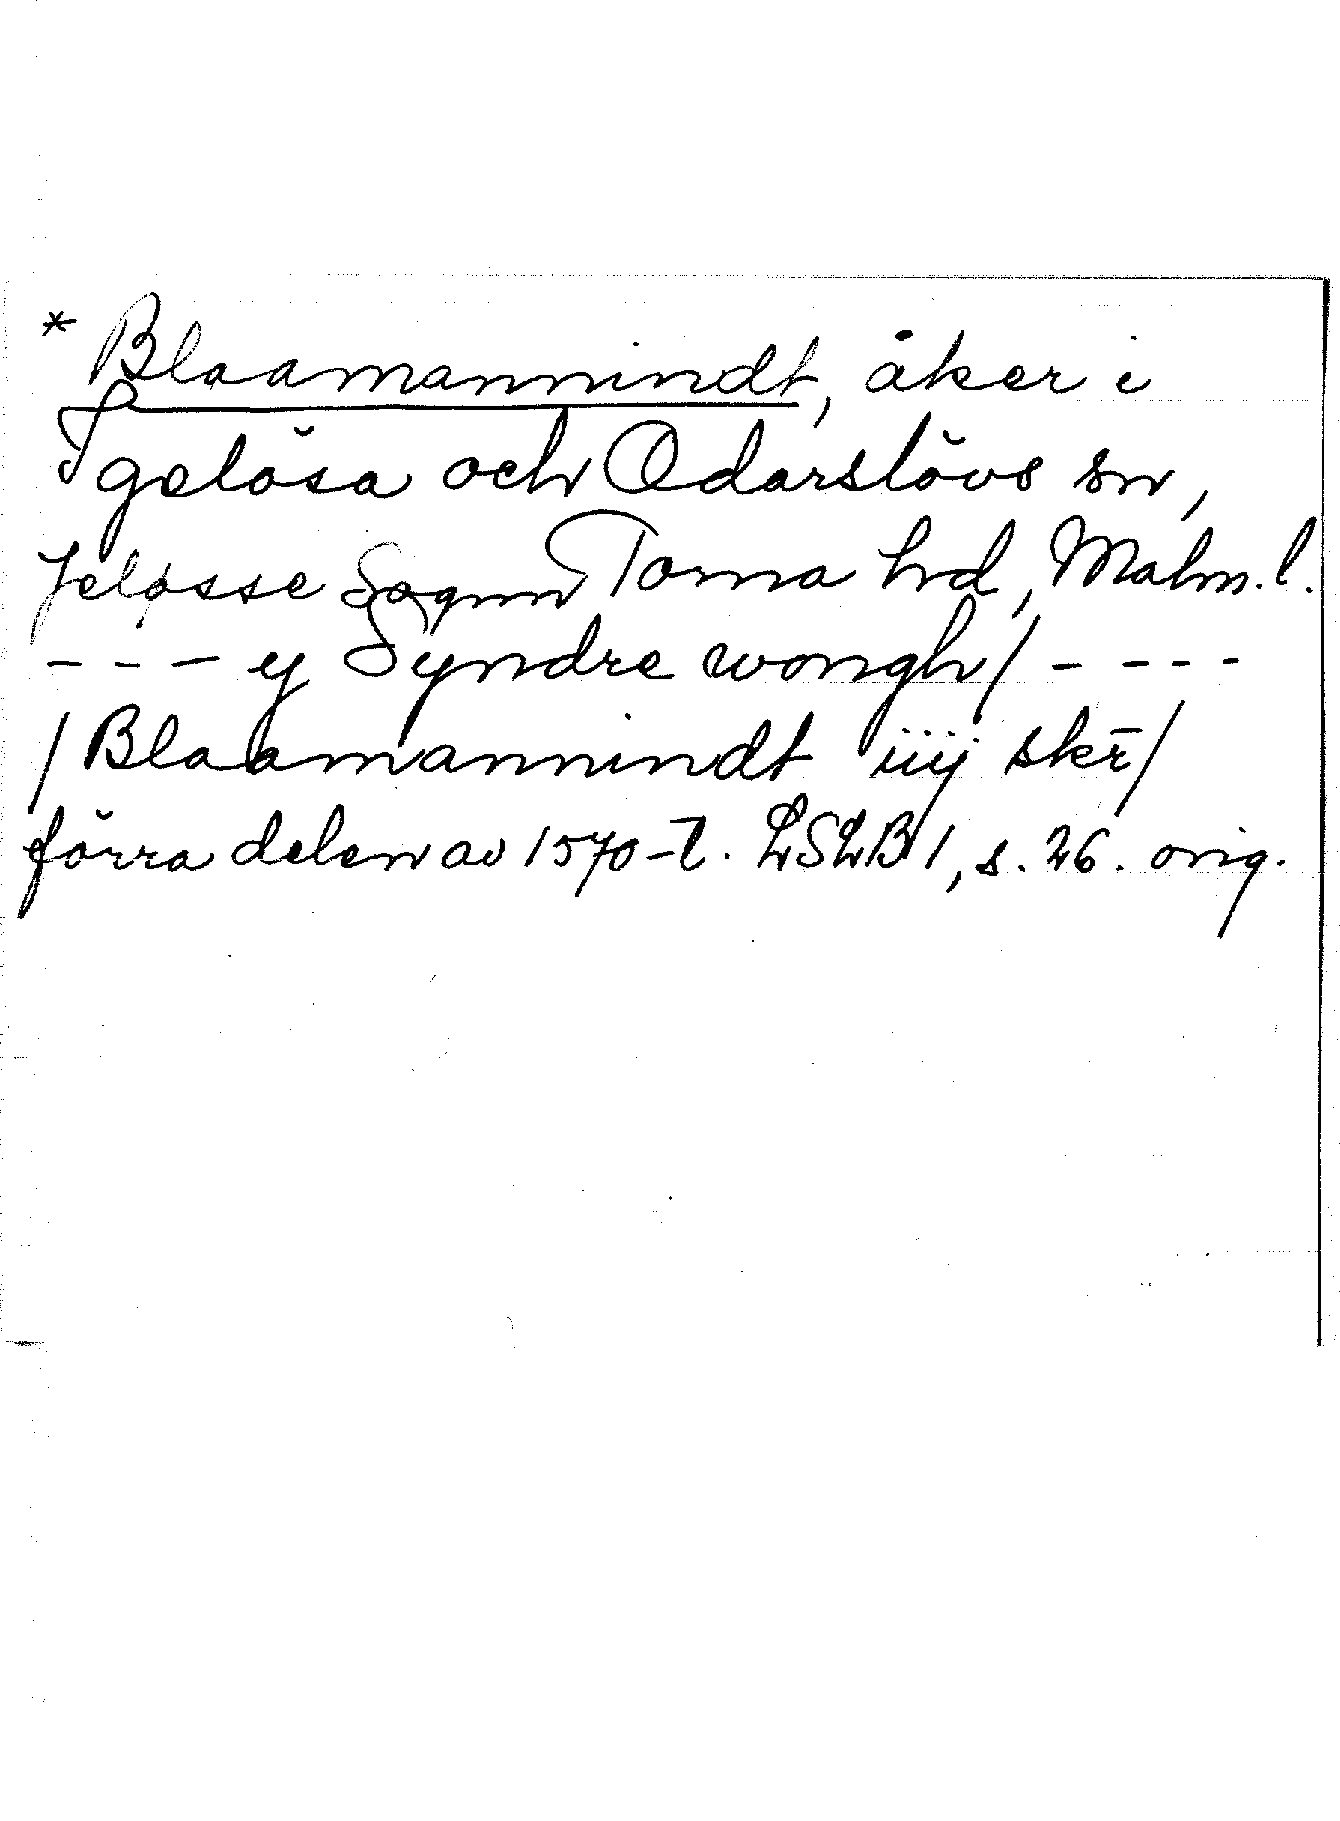 * Blaamannindt, åker i
Igelösa och Odarslövs sn,
Jeløsse Sognn Torna hd, Malm. l.
--- y Syndre wongh/ ----
/ Blaamannindt iiij skr̄/
förra delen av 1570-t. LSLB 1, s. 26. orig.